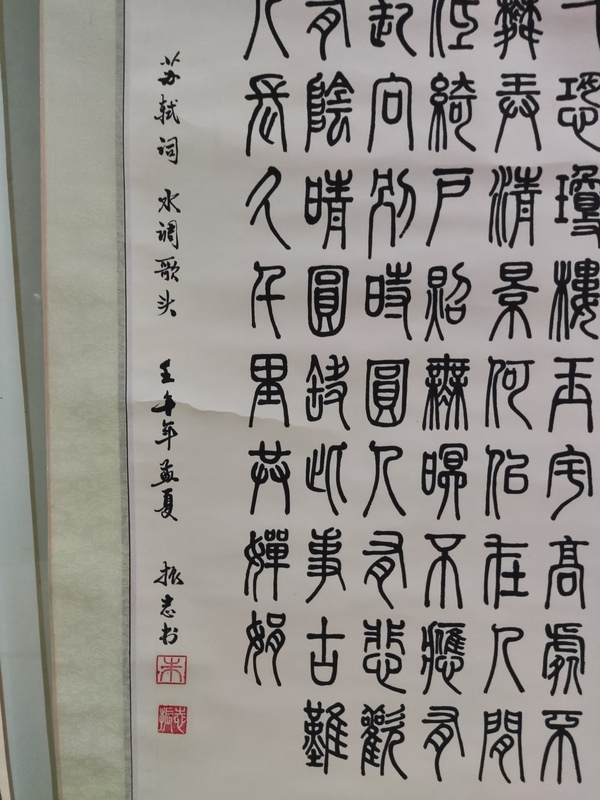 恐瓊樓玉宇高處不
舞弄清景何佀在人間
低綺戶照無眠不應有
向別時圓人有悲歡
有陰晴圓缺此事古難
人長久千里共嬋娟
苏轼词 水调歌头 壬午年孟夏 振志书
朱
振志